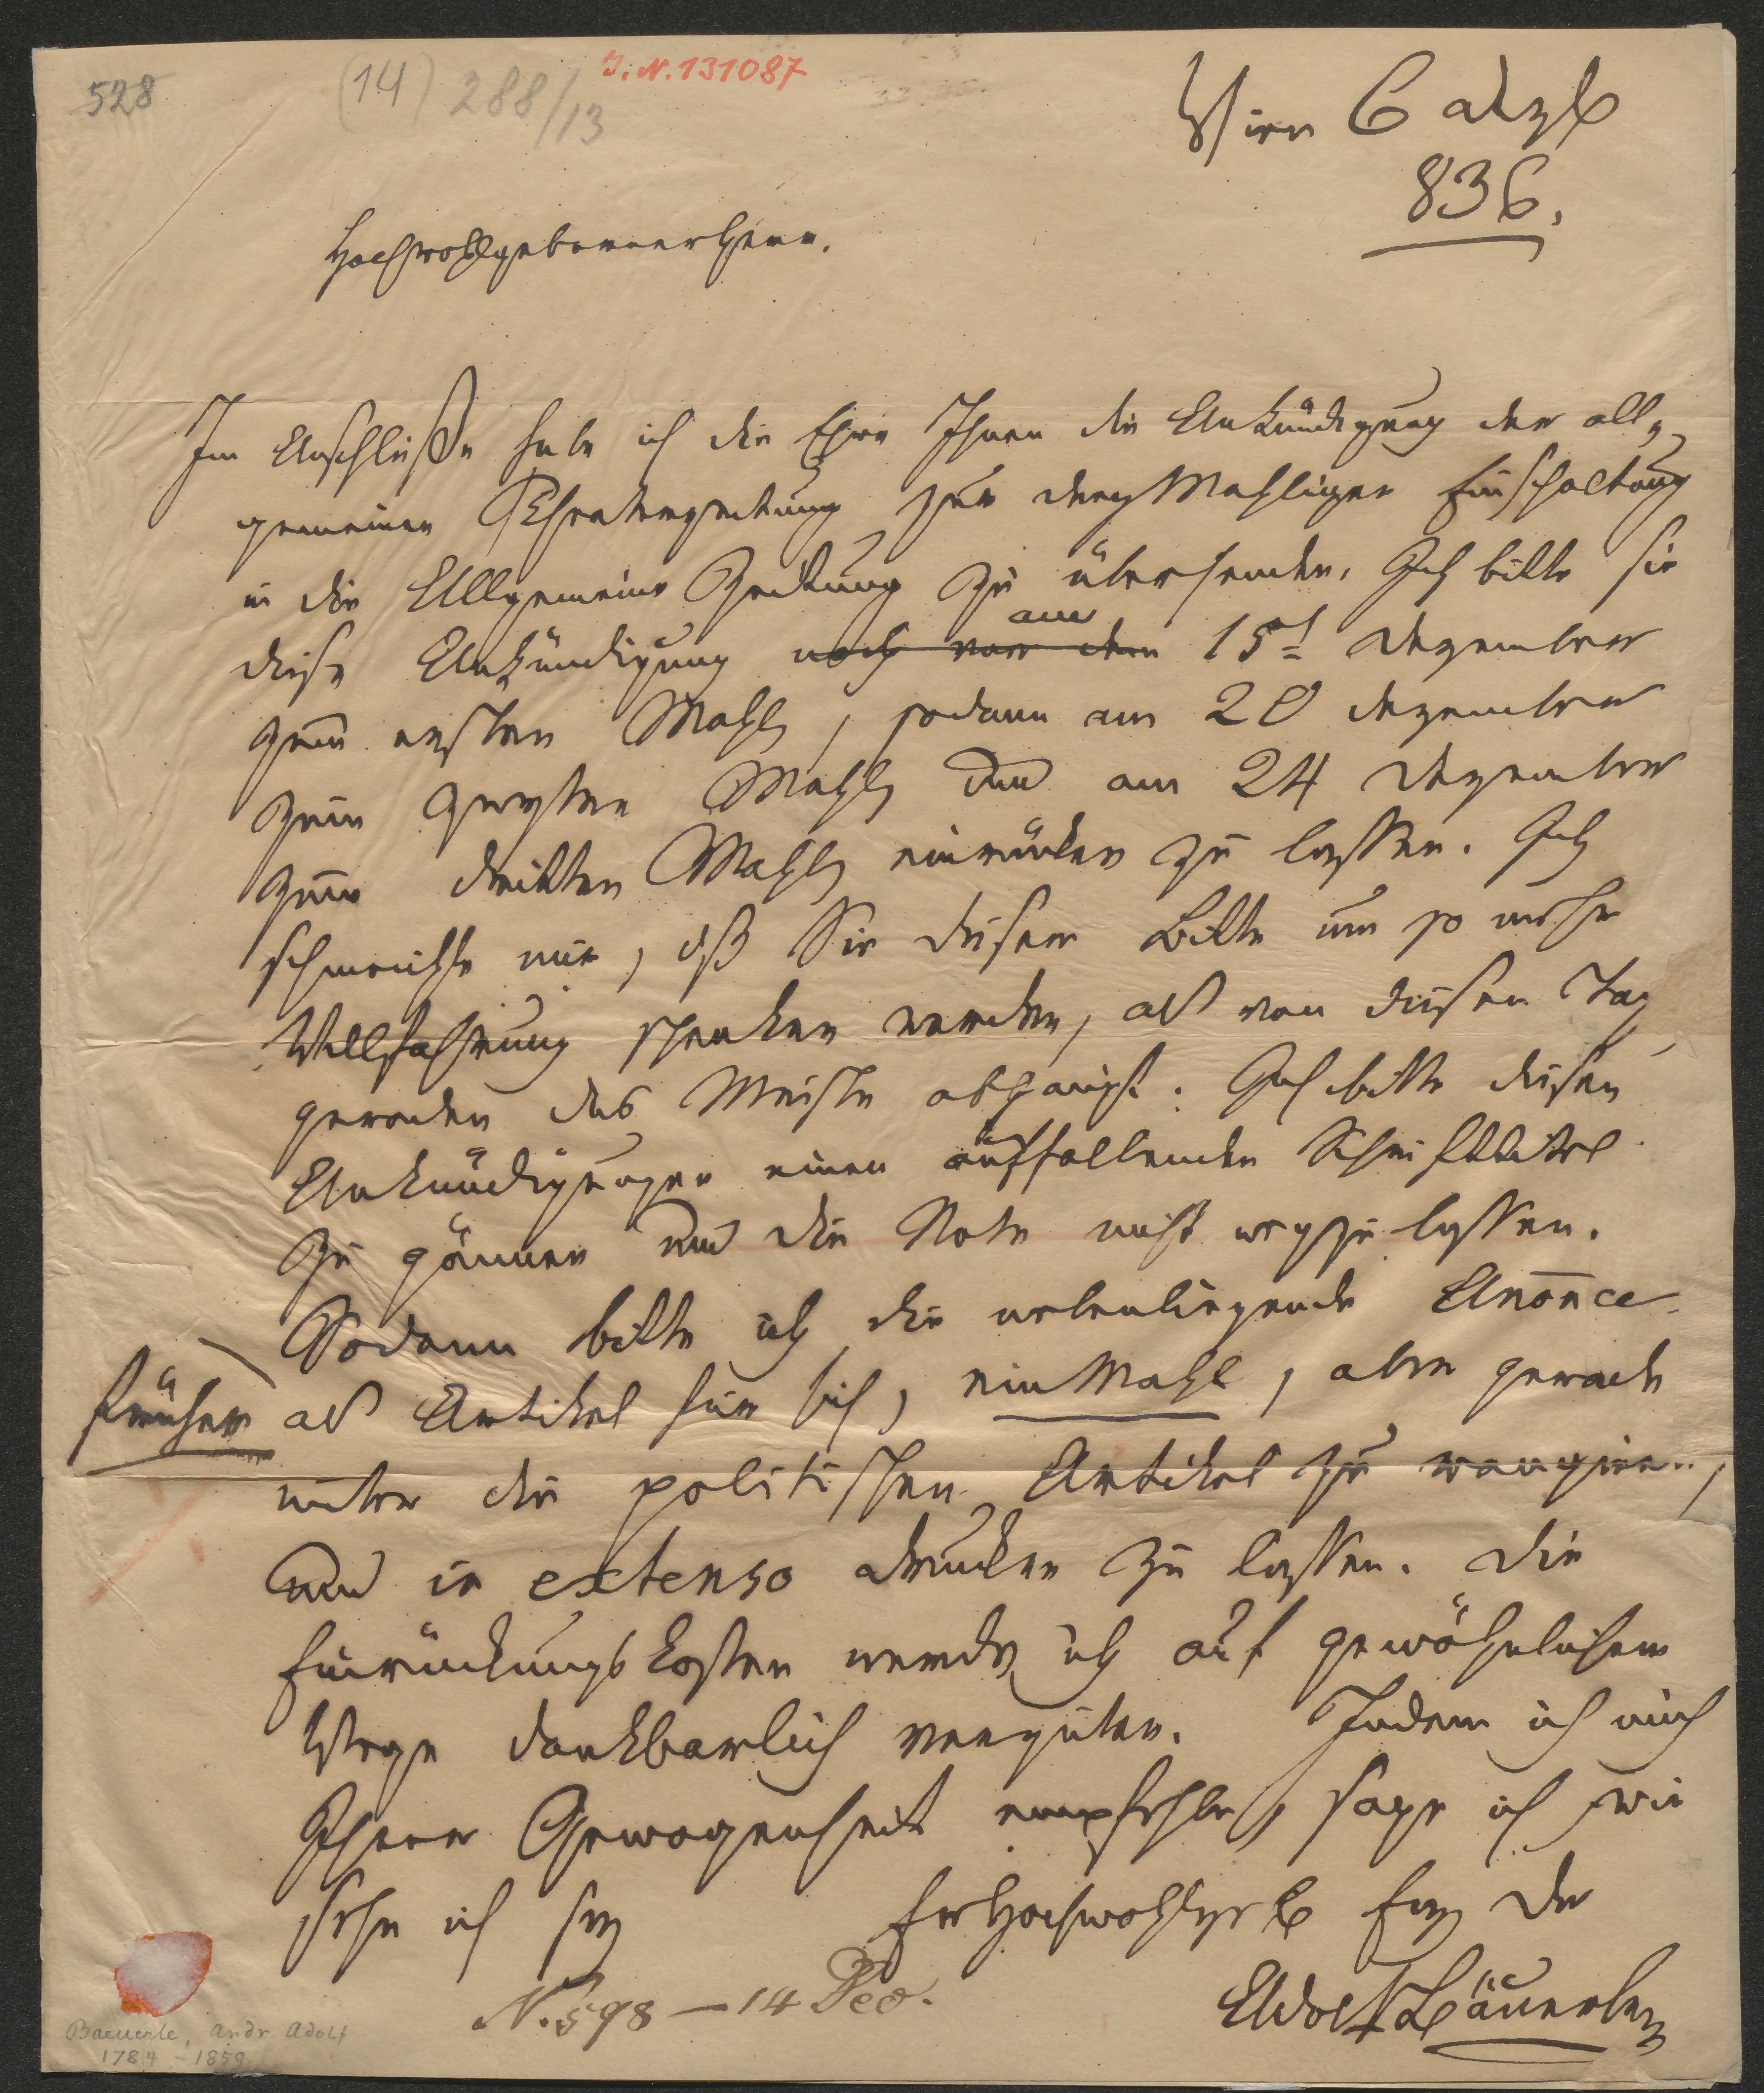 528
(14) 288/13
I. N. 131087
Wien 6 dzb
836.
Hochwohlgeborner Herr.
Im Anschluße habe ich die Ehre Ihnen die Ankündigung der all-
gemeinen Theaterzeitung zur dreymahligen Einschaltung
in die Allgemeine Zeitung zu übersenden. Ich bitte sie
diese Ankündigung noch vor dem am 15t Dezember
zum ersten Mahle, sodann am 20 dezember
zum zweyten Mahle und am 24 Dezember
zum dritten Mahle einrücken zu lassen. Ich
schmeichle mir, dß Sie dieser Bitte um so mehr
Willfahrung schenken werden, als von diesen Tag
geraden das Meiste abhängt. Ich bitte diesen
Ankündigungen einen auffallenden Schrifttitel
zu gönnen und die Note nicht wegzulassen.
Sodann bitte ich die nebenliegende Anonce
früher als Artikel für sich, ein Mahl, aber gerade
unter die politischen Artikel zu rangiren,
und in extenso drucken zu lassen. Die
Einrückungskosten werde ich auf gewöhnlichem
Wege dankbarlich vergüten. Indem ich mich
Ihrer Gewogenheit empfehle, sage ich wie
sehr ich sey
Er Hochwohlgeb Erg Dr
Adolf Bäuerle
N. 598 – 14 Dec.
Baeuerle, Andr Adolf
1784 – 1859